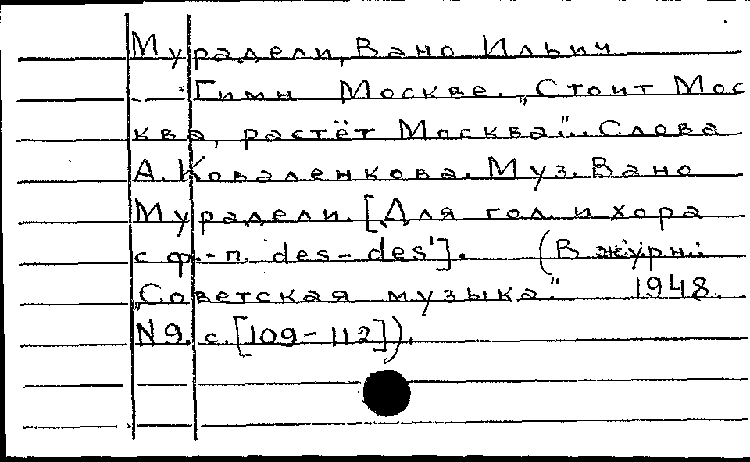 Мурадели, Вано Ильич
Гимн Москве. „Стоит Мос
ква, растёт Москва"... Слова
А. Коваленкова. Муз. Вано
Мурадели. [Для гол. и хора
с ф.-п. des-des']. (В журн.:
„Советская музыка." 1948.
N9. с. [109-112]).